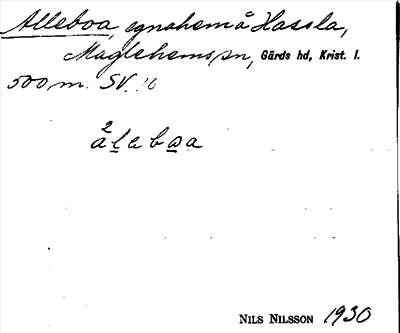 Alleboa, egnahem å Hassla,
Maglehems sn, Gärds hd, Krist. l.
500 m. SV.
2
åleboa
NILS NILSSON 1930